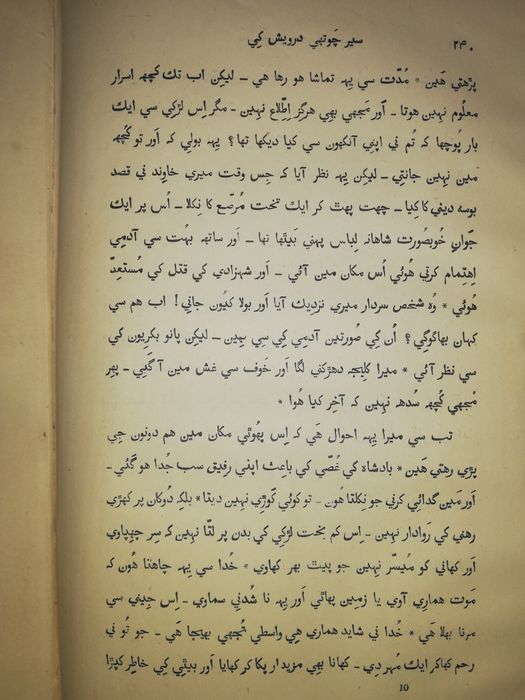 ۲۴۰ سیر چَوتھي درویش کي
پڑھتي هَین * مُدّت سي یہ تماشا هو رها هي ــ لیکن اب تك کچھ اسرار
معلُوم نہین هوتا ــ اَور مُجھي بھي هرگز اِطِّلاع نہین ــ مگر اِس لڑکي سي ایك
بار پُوچھا کہ تُم ني اپني آنکھون سي کیا دیکھا تھا ؟ یہ بولي کہ اَور تو کُچھ
مَین نہین جانتي ــ لیکن یہ نظر آیا کہ جِس وقت میري خاوند ني قصد
بوسہ دیني کا کِیا ــ چھت پھٹ کر ایك تخت مُرصّع کا نِکلا ــ اُس پر ایك
جوان خُوبصُورت شاهانہ لِباس پہني بَیٹھا تھا ــ اَور ساتھ بہُت سي آدمِي
اِهتِمام کرتي هُوئي اُس مکان مین آئي ــ اَور شہزادي کي قتل کي مُستعِدّ
هُوئي * وُہ شخص سردار میري نزدیك آیا اَور بولا کیُون جاني ! اب هم سي
کہان بھاگوگي ؟ اُن کي صُورتین آدمِي کي سي تھین ــ لیکن پانو بکریون کي
سي نظر آئي * میرا کلیجہ دھڑکني لگا اَور خَوف سي غش مین آ گئي ــ پھر
مُجھي کُچھ سُدھ نہین کہ آخِر کیا هُوا *
تب سي میرا یہ احوال هَي کہ اِس پھُوٹي مکان مین هم دونون جي
پڑي رهتي هَین * بادشاہ کي غُصّي کي باعِث اپني رفِیق سب جُدا هو گئي ــ
اَور مَین گدائي کرني جو نِکلتا هُون ــ تو کوئي کَوڑي نہین دیتا * بلکہ دُوکان پر کھڑي
رهني کي رَوادار نہین ــ اِس کم بخت لڑکي کي بدن پر لتّا نہین کہ سِر چھپاوي
اَور کھاني کو مُیسّر نہین جو پیٹ بھر کھاوي * خُدا سي یہ چاهتا هُون کہ
مَوت هماري آوي یا زمین پھاٹي اَور یہ نا شُدني سماوي ــ اِس جِیني سي
مرنا بھلا هَي * خُدا ني شاید هماري هي واسطي تُجھي بھیجا هَي ــ جو تُو ني
رحم کھاکر ایك مُہر دِي ــ کھانا بھي مزیدار پکا کر کھایا اَور بیٹي کي خاطِر کپڑا
10